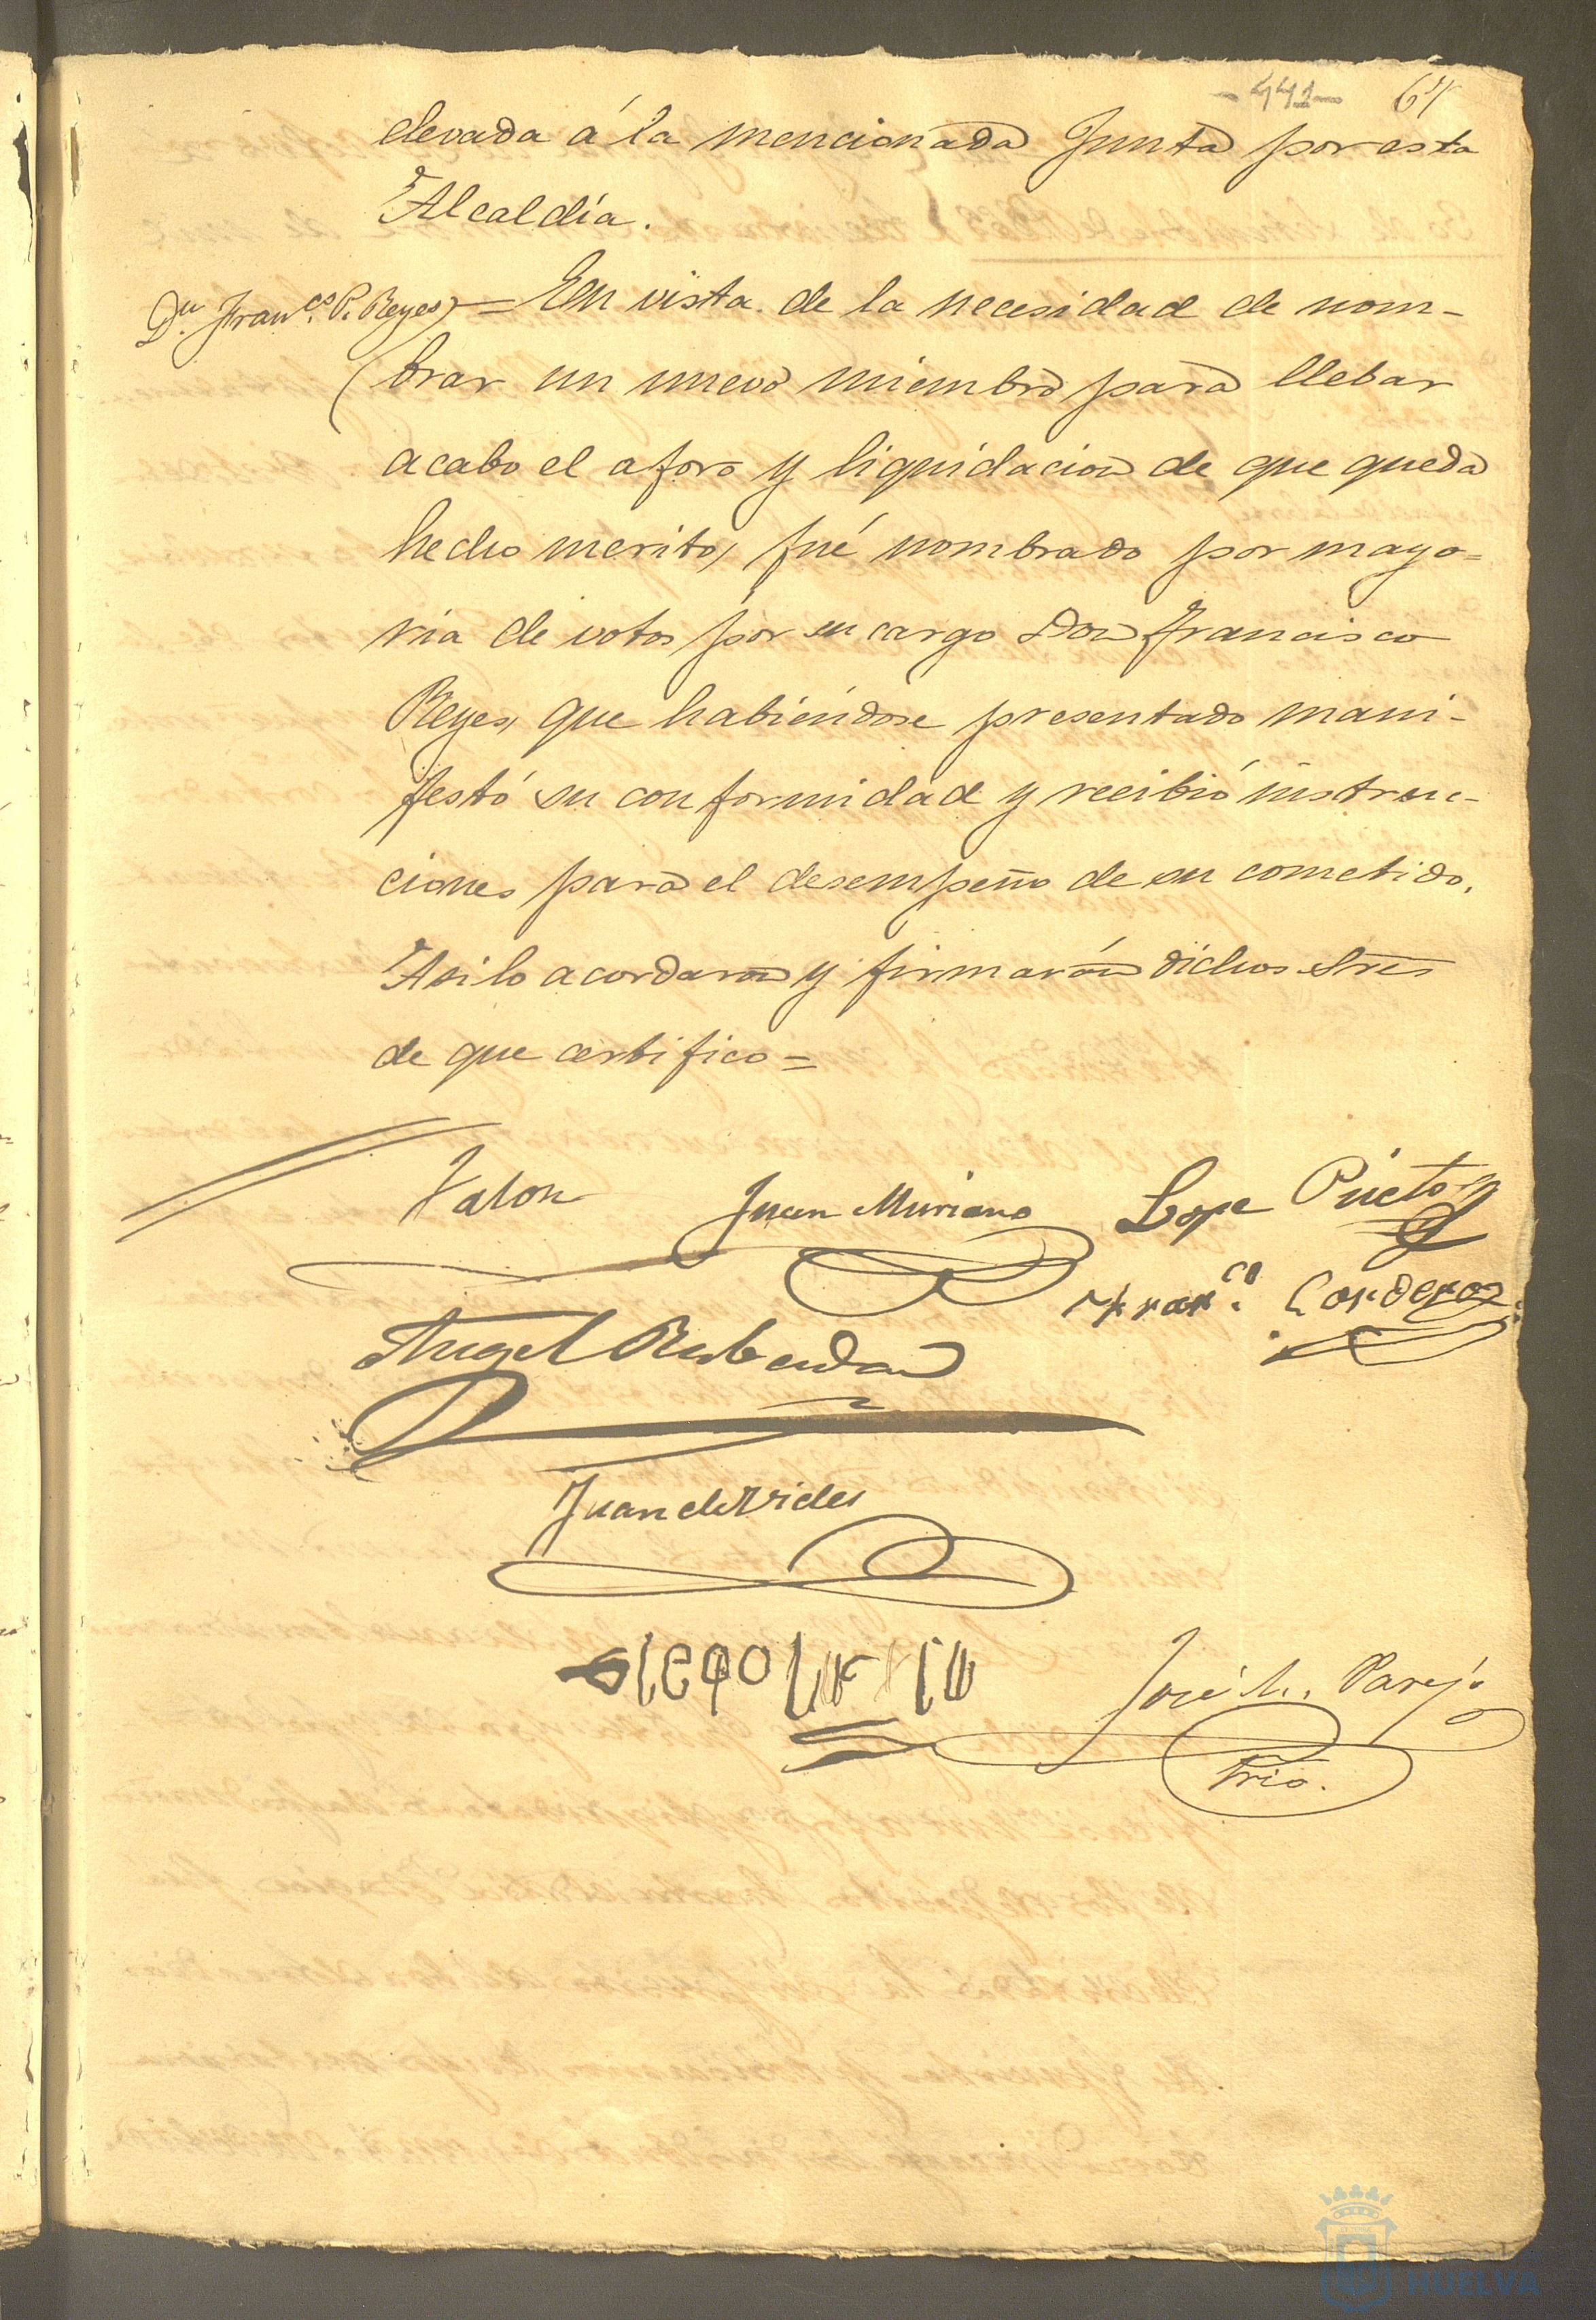 -441- 67
elevada á la mencionada Junta por esta
Alcaldía.
Dn Franco. P. Reyes) = En vista de la necesidad de nom-
brar un nuevo miembro para llebar
acabo el aforo y liquidacion de que queda
hecho merito, fué nombrado por mayo=
ria de votos por su cargo Don Francisco
Reyes, que habiéndose presentado mani-
festó su conformidad y recibió instruc-
ciones para el desempeño de su cometido.
Asi lo acordaron y firmarón dichos Sres
de que certifico=
Juan Muriano Lope Prieto
Franco. Cordero
Angel
Juan de Vides
José L. Parejo
Srio.
HUELVA